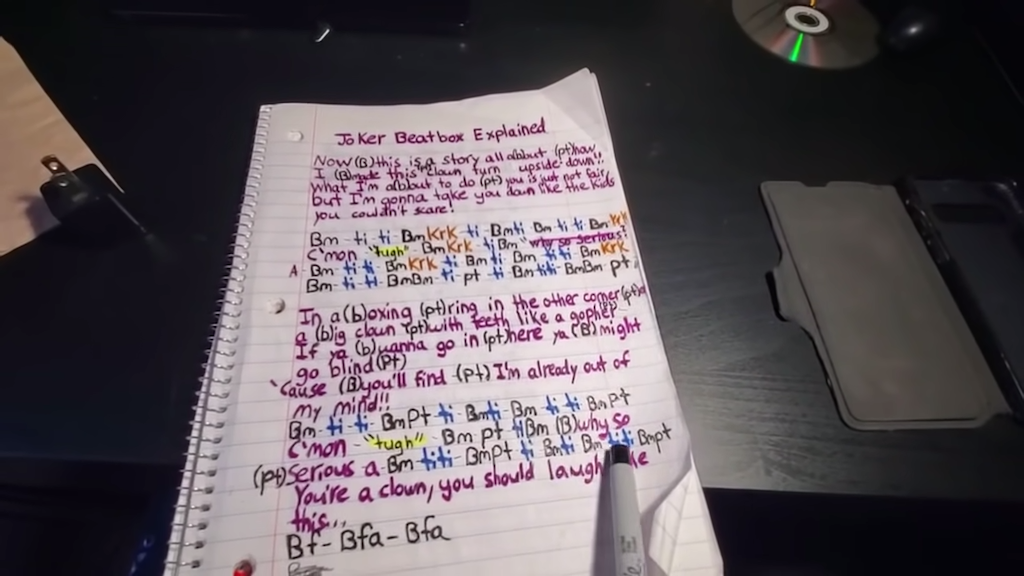 Joker Beatbox Explained
Now (B)this is a story all about (pt)how
I (B)made this clown turn upside down!!
what I'm about to do (pt) you is just not fair
but I'm gonna take you down like the kids
you couldn't scare!
Bm - ti - ti - Bm KrK - ti - Bmti - Bm - ti - ti - Bm KrK
C'mon - "tugh" - Bm KrK - ti Bm "why so serious?"
A Bm - ti - ti - Bm KrK - ti - Bm - ti ti - Bm KrK
Bm - ti - ti - BmBm - ti - pt - ti - Bm ti ti - BmBm - pt
In a (b)oxing (pt)ring in the other corner (pt)
a (b)ig clown (pt)with teeth like a gopher
If ya (b)wanna go in (pt)here ya (B)might
go blind (Pt)
'Cause (B)you'll find (pt) I'm already out of
my mind!!
Bm - ti - ti - BmPt - ti - Bmti - Bm - ti ti - BmPt
C'mon - "tugh" - Bm pt - ti Bm (B)why so
(pt)Serious a - Bm - ti ti - BmPt - ti - Bmti - Bm - ti ti - Bmpt
You're a clown, you should laugh
this...
Bf - Bfa - Bfa